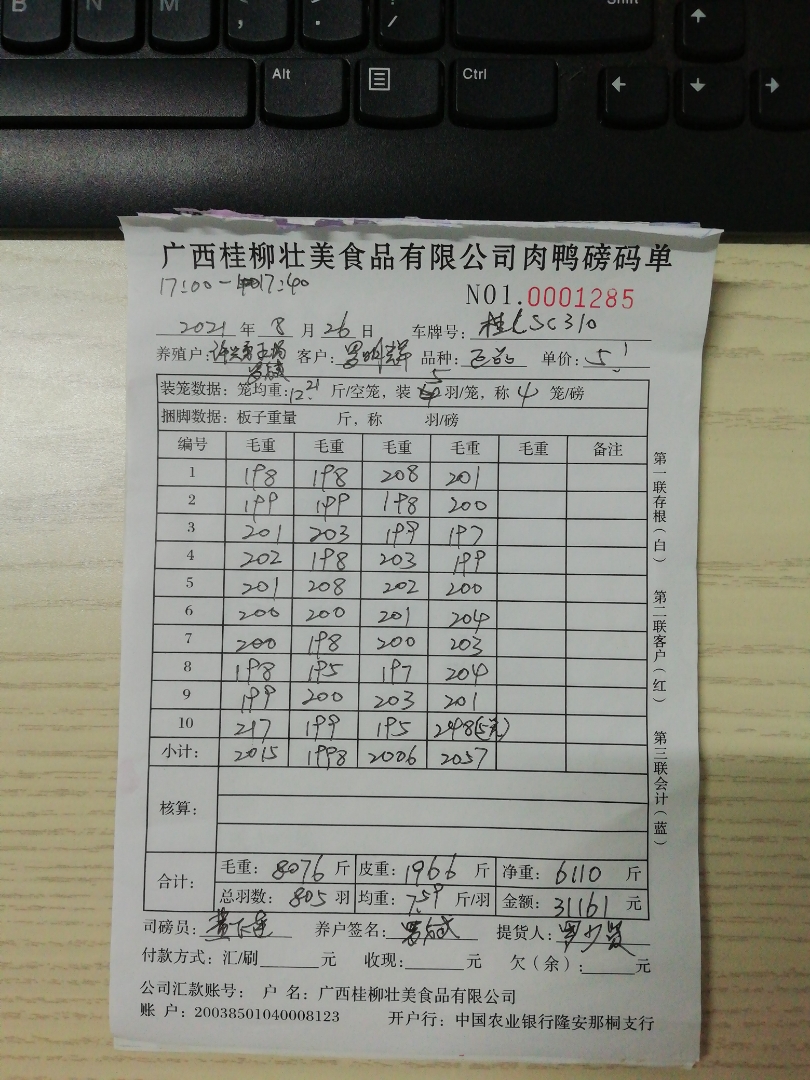 B N M < , > . ? / Shift ↑
Alt Ctrl ← ↓ →
广西桂柳壮美食品有限公司肉鸭磅码单
17:00-17:40
NO1.0001285
2021年8月26日 车牌号:桂LSC310
养殖户: 客户: 品种: 单价:5.1
装笼数据:笼均重:12.21斤/空笼,装5羽/笼,称4笼/磅
捆脚数据:板子重量 斤,称 羽/磅
编号 毛重 毛重 毛重 毛重 毛重 备注
1 198 198 208 201
2 199 199 198 200
3 201 203 199 197
4 202 198 203 199
5 201 208 202 200
6 200 200 201 204
7 200 198 200 203
8 198 195 197 204
9 199 200 203 201
10 217 199 195 248(5笼)
小计: 2015 1998 2006 2057
核算:
合计: 毛重:8076斤 皮重:1966斤 净重:6110斤
总羽数:805羽 均重:7.59斤/羽 金额:31161元
司磅员: 养户签名: 提货人:
付款方式:汇/刷 元 收现: 元 欠(余): 元
公司汇款账号: 户 名:广西桂柳壮美食品有限公司
账 户:20038501040008123 开户行:中国农业银行隆安那桐支行
第一联存根(白) 第二联客户(红) 第三联会计(蓝)